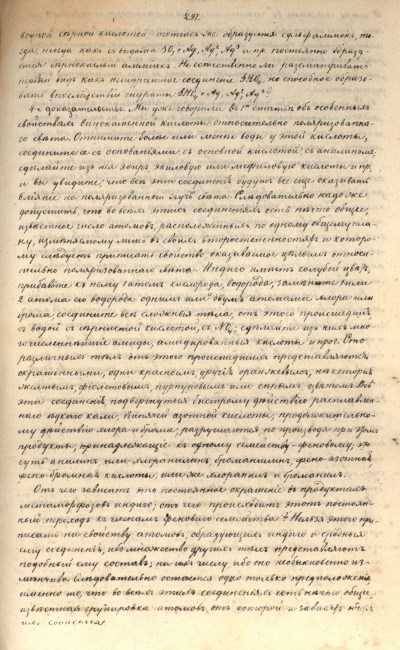 297.
водной сѣрной кислотой тотчасъ же образуется сульфаминъ, то-
гда, тогда какъ съ водою SO₃ + Aq, Aq² Aq³ и пр. постоянно образу-
ется сѣрнокислый амміакъ. Не естественно ли разсматривать
первый видъ какъ соединеніе SHO₄, но способное образо-
вать впослѣдствіи гидраты SHO₄ + Aq, Aq² Aq³?
4е доказательство. Мы уже говорили въ 1й статьѣ объ особенныхъ
свойствахъ виннокаменной кислоты относительно поляризованна-
го свѣта. Отнимите болѣе или менѣе воды у этой кислоты,
соедините ее съ основаніями съ основной кислотой, съ анилиномъ,
сдѣлайте изъ нея эѳиръ этиловую или метиловую кислоты и пр.
и вы увидите, что всѣ эти соединенія будутъ все еще оказывать
вліяніе на поляризованный лучь свѣта. Слѣдовательно надо же
допустить, что во всѣхъ этихъ соединеніяхъ есть нѣчто общее,
извѣстное число атомовъ, расположенныхъ по одному общему пла-
ну, измѣняемому лишь въ своихъ второстепенностяхъ и которо-
му слѣдуетъ приписать свойство оказываемое цѣлымъ относи-
тельно поляризованнаго свѣта. Индиго имѣетъ голубой цвѣтъ,
прибавьте къ нему 1 атомъ кислорода, водорода, замѣните 1 или
2 атома его водорода однимъ или двумя атомами хлора или
брома соедините всѣ сложныя тѣла, отъ этого происшедшія
съ водой съ сѣрнистой кислотой, съ сдѣлайте изъ нихъ мно-
гочисленнѣйшіе амиды, амидированныя кислоты и проч. Сто
различныхъ тѣлъ отъ этого происшедшихъ представляются
окрашенными, одни краснымъ другія оранжевымъ, на которыя
желтымъ, фіолетовымъ, пурпуровымъ или синимъ цвѣтомъ. Всѣ
эти соединенія, подвергнутыя быстрому дѣйствію расплавлен-
наго ѣдкаго кали, кипящей азотной кислоты, продолжительно-
му дѣйствію хлора и брома, разрушаются но производя при этомъ
продукты, принадлежащіе къ одному семейству - феновому, то
суть анилинъ или хлоранилинъ, броманилинъ, фено-азотная
фено-бромная кислоты, или же хлоранилъ и броманилъ.
Отъ чего зависитъ это постоянное окрашеніе въ продуктахъ
метаморфозовъ индиго; отъ чего происходитъ этотъ постоян-
ный переходъ къ членамъ фенового семейства? Нельзя этого при-
писать ни свойству атомовъ, образующихъ индиго и сродныя
ему соединенія, ибо множество другихъ тѣлъ представляютъ
подобный ему составъ; ни ихъ числу, ибо оно необыкновенно из-
мѣнчиво. Слѣдовательно остается одно только предположеніе
именно то, что во всѣхъ этихъ соединеніяхъ есть нѣчто общее,
извѣстная группировка атомовъ, отъ которой и зависятъ
ихъ свойства.